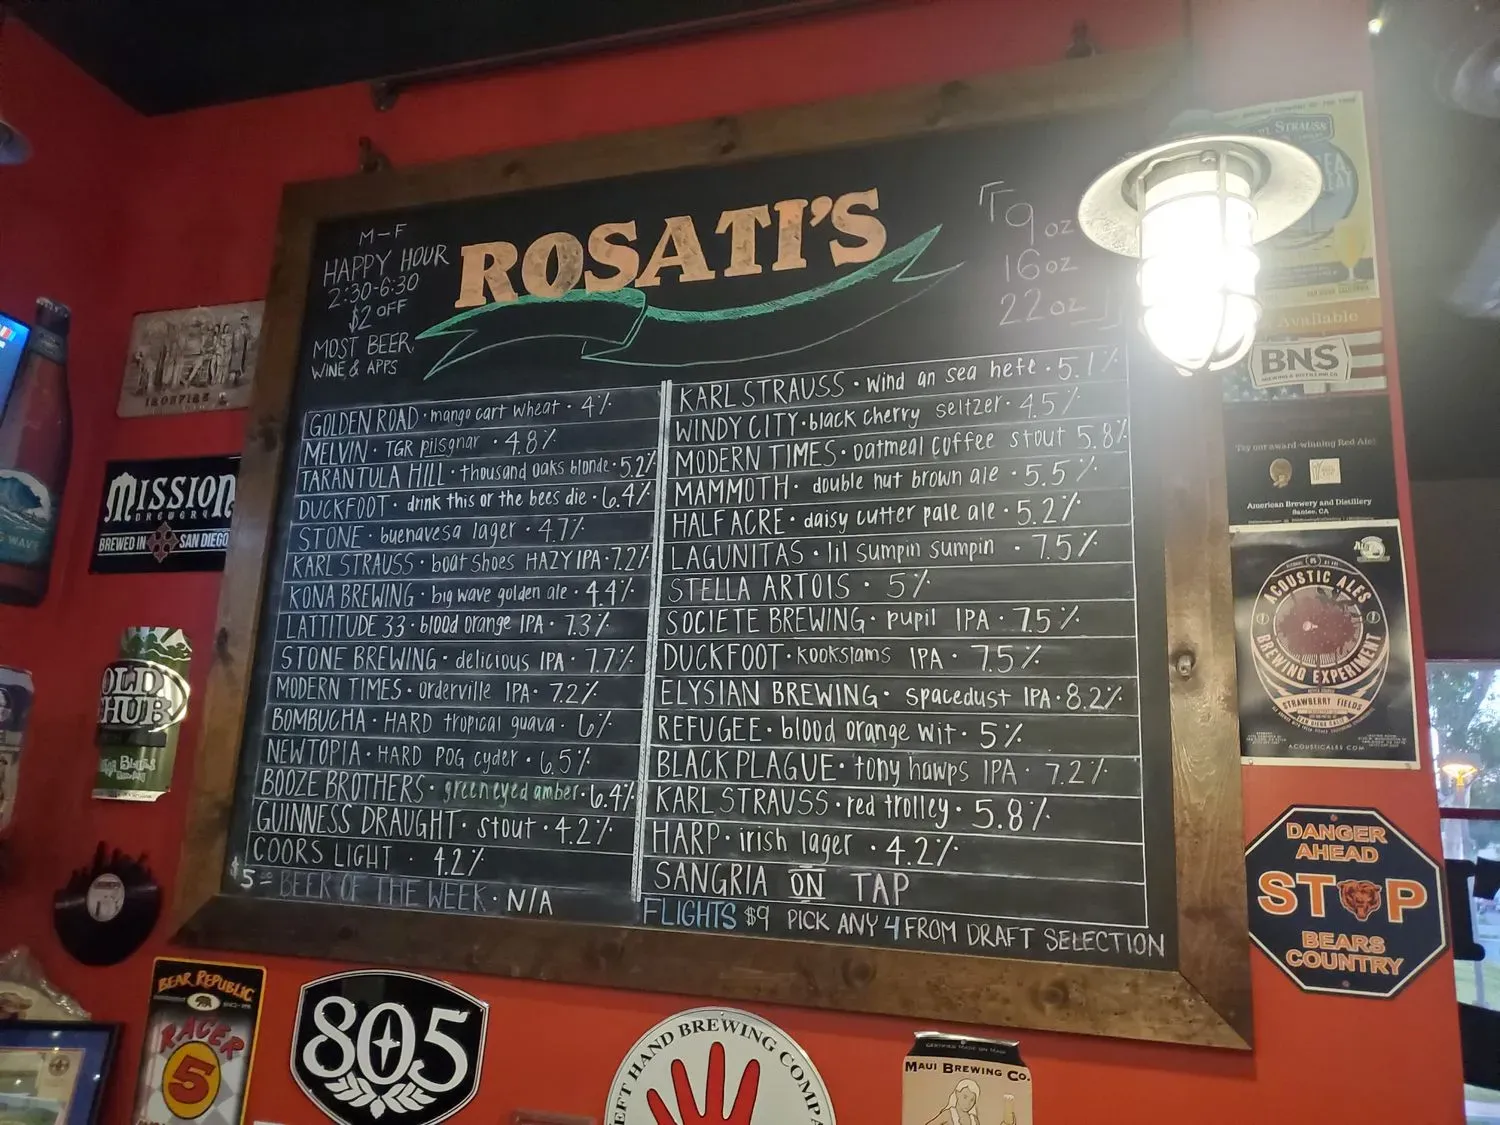 M-F
HAPPY HOUR
2:30-6:30
$2 OFF
MOST BEER,
WINE & APPS
ROSATI'S
9 oz
16 oz
22 oz
GOLDEN ROAD · mango cart wheat · 4%
MELVIN · TGR pilsgnar · 4.8%
TARANTULA HILL · thousand oaks blonde · 5.2%
DUCKFOOT · drink this or the bees die · 6.4%
STONE · buenavesa lager · 4.7%
KARL STRAUSS · boat shoes HAZY IPA · 7.2%
KONA BREWING · big wave golden ale · 4.4%
LATTITUDE 33 · blood orange IPA · 7.3%
STONE BREWING · delicious IPA · 7.7%
MODERN TIMES · orderville IPA · 7.2%
BOMBUCHA · HARD tropical guava · 6%
NEWTOPIA · HARD POG cyder · 6.5%
BOOZE BROTHERS · green eyed amber · 6.4%
GUINNESS DRAUGHT · stout · 4.2%
COORS LIGHT · 4.2%
$5 - BEER OF THE WEEK · N/A
KARL STRAUSS · wind an sea hefe · 5.1%
WINDY CITY · black cherry seltzer · 4.5%
MODERN TIMES · oatmeal coffee stout 5.8%
MAMMOTH · double nut brown ale · 5.5%
HALF ACRE · daisy cutter pale ale · 5.2%
LAGUNITAS · lil sumpin sumpin · 7.5%
STELLA ARTOIS · 5%
SOCIETE BREWING · pupil IPA · 7.5%
DUCKFOOT · kookslams IPA · 7.5%
ELYSIAN BREWING · spacedust IPA · 8.2%
REFUGEE · blood orange wit · 5%
BLACK PLAGUE · tony hawps IPA · 7.2%
KARL STRAUSS · red trolley · 5.8%
HARP · irish lager · 4.2%
SANGRIA ON TAP
FLIGHTS $9 PICK ANY 4 FROM DRAFT SELECTION
IRONFIRE
MISSION
BREWERY
BREWED IN SAN DIEGO
OLD
CHUB
BEAR REPUBLIC
RACER
5
805
LEFT HAND BREWING COMPA
MAUI BREWING CO.
KARL STRAUSS
Available
BNS
Try our award-winning Red Ale!
American Brewery and Distillery
Santee, CA
ACOUSTIC ALES
BREWING EXPERIMENT
STRAWBERRY FIELDS
ACOUSTICALES.COM
DANGER
AHEAD
STOP
BEARS
COUNTRY